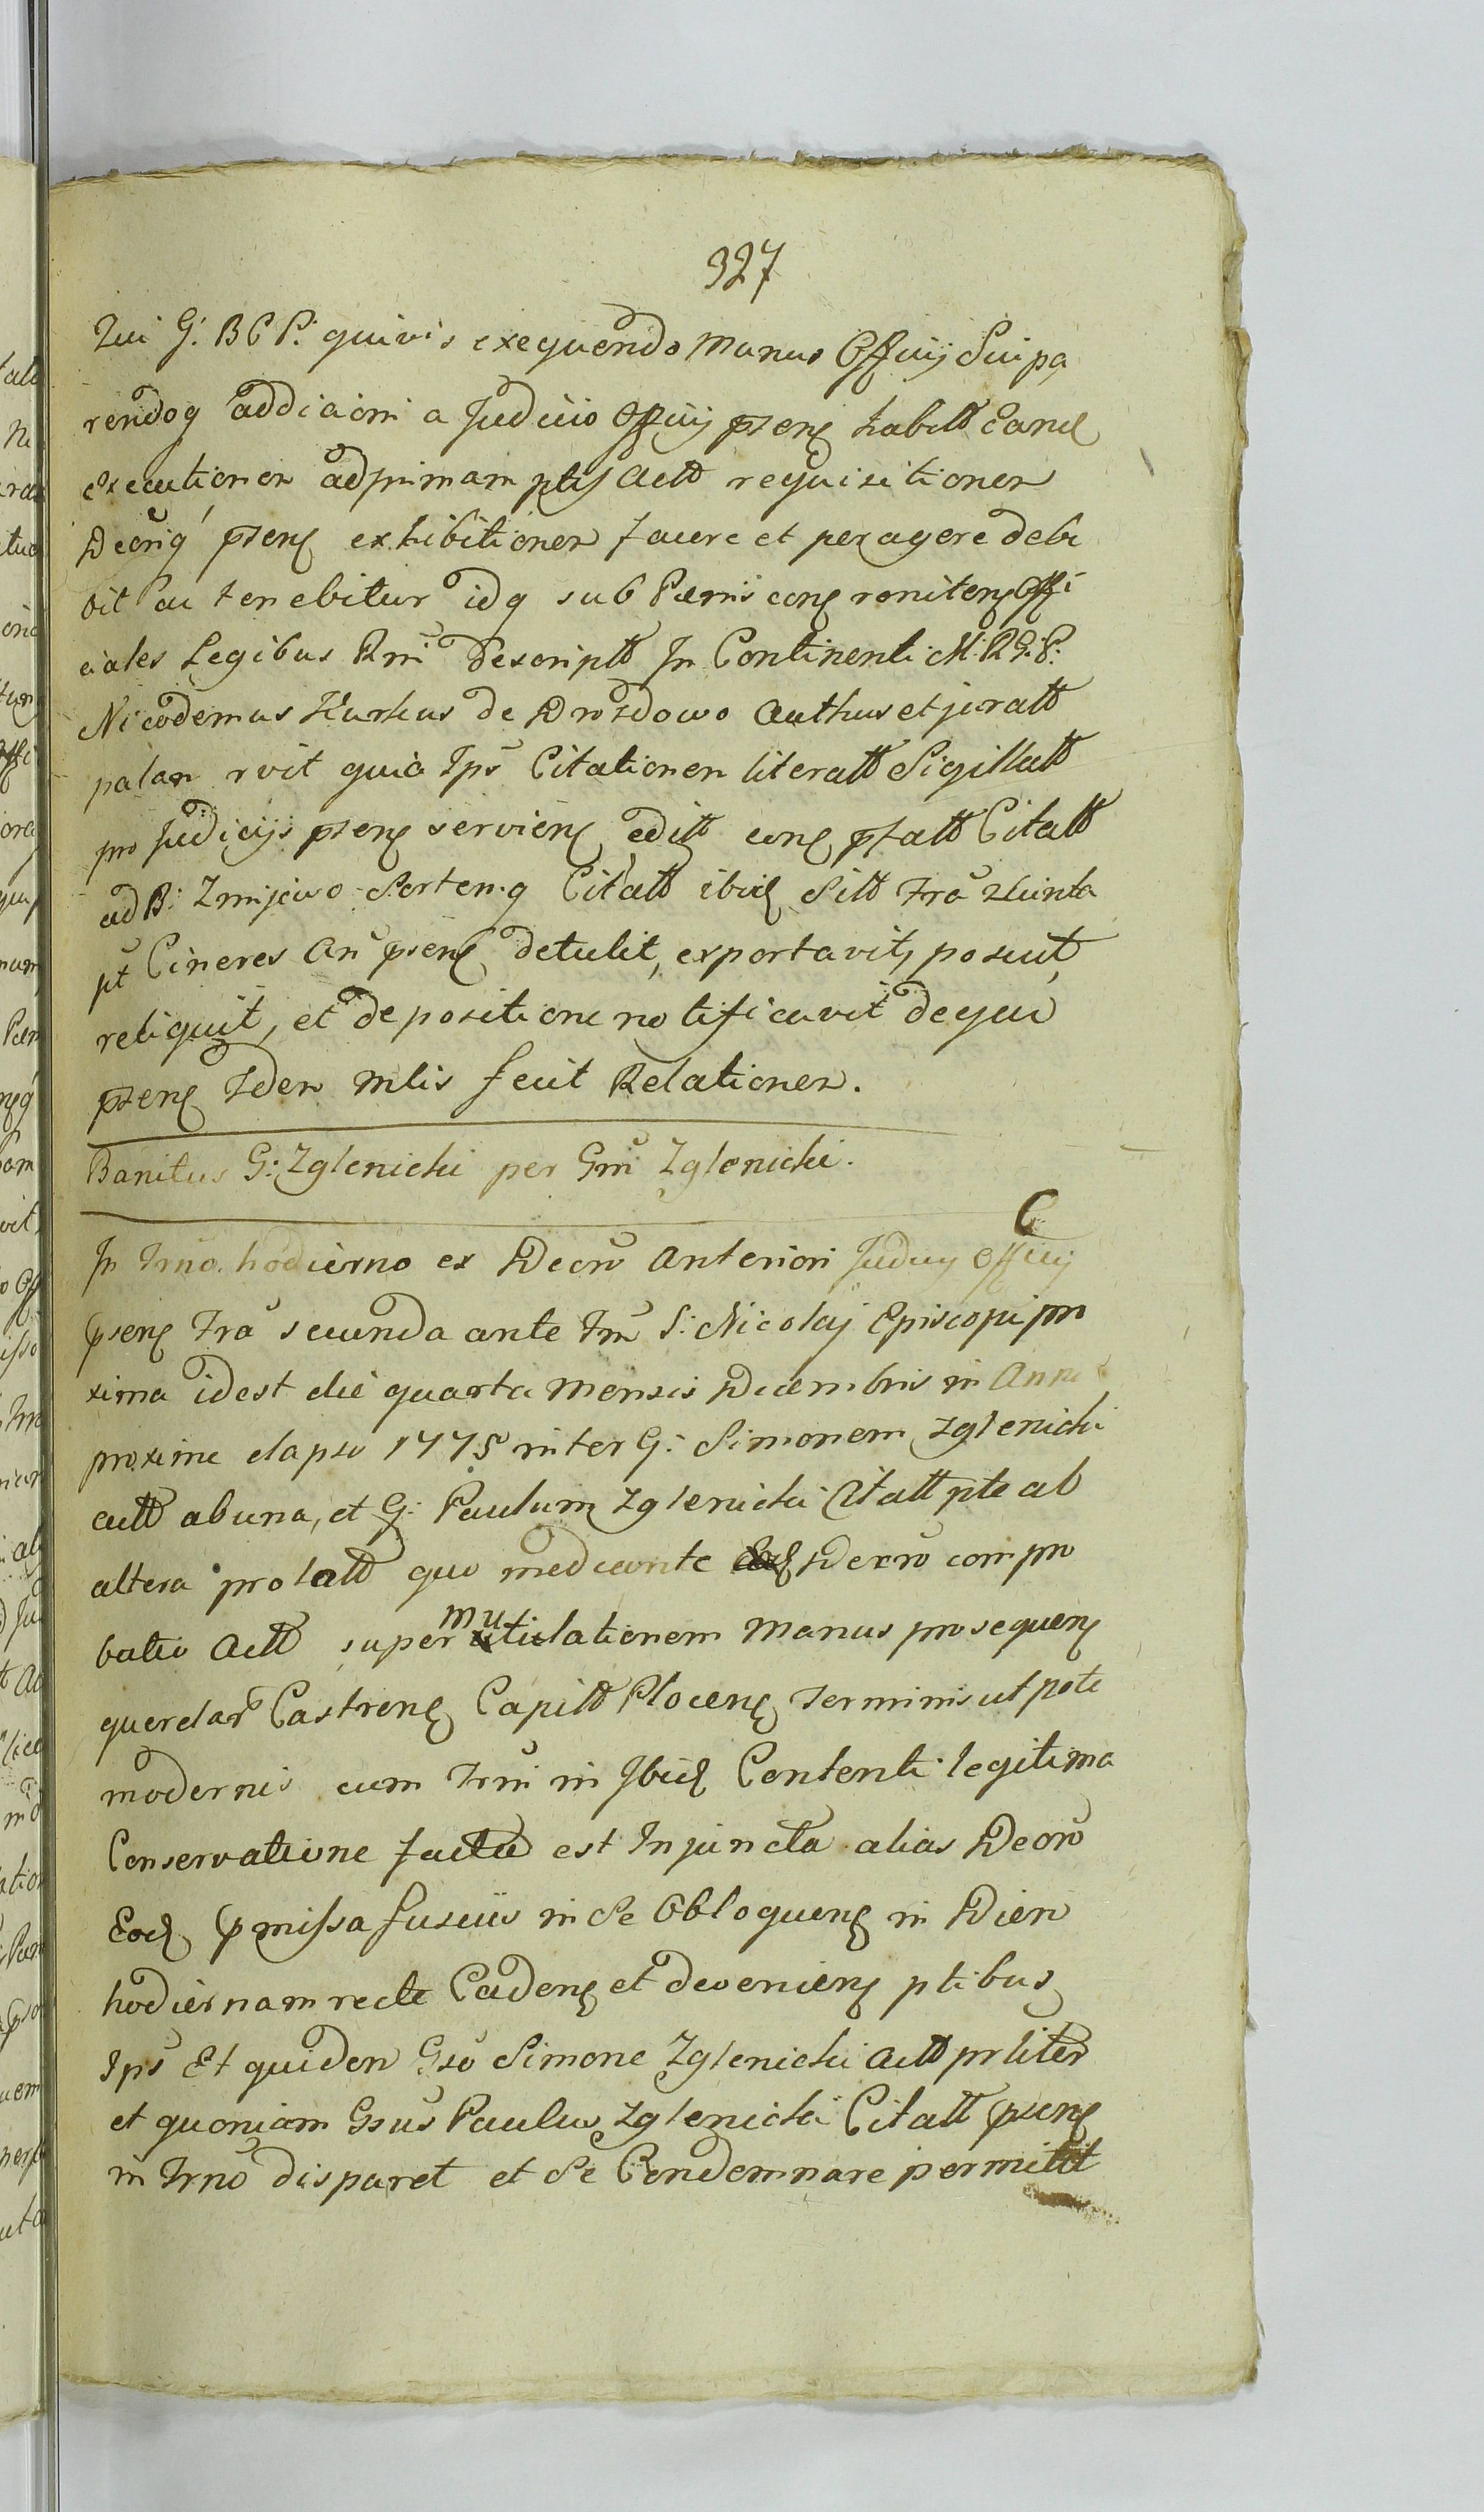 327
Qui G: B C P: quivis exequendo munus Officij Sui pa
rendoq addicioni a Judicio Officij pnsens habitt Eand
executionem ad primam ptis Actt requisitionem
Decriq pnsens exhibitionem facere et peragere debe
bit ac tenebitur idq sub Pænis cons renitens Offi
ciales Legibus Rni descriptt In Continenti M: R G: P:
Nicodemus Kurkus de Drozdowo Authus et juratt
palam rvit quia Ips Citationem literatt Sigillatt
pro Judicijs pnsens serviens editt cons pfatt Citatt
ad B: Zmijewo Sortemq Citatt ibid Sitt Fra Quinta
pt Cineres An pnsens detulit, exportavit, posuit,
reliquit, et de positione notificavit de qua
pnsens Idem Mlis fecit Relationem.
Banitus G: Zglenicki per Gm Zglenicki.
C
In Trno hodierno ex Decro Anteriori Judicij Officij
pnsens Fra secunda ante Fm S: Nicolaj Episcopi pro
xima id est die quarta Mensis Decembris in Anno
proxime elapso 1775 inter G: Simonem Zglenicki
actt ab una, et G: Paulum Zglenicki Citatt pte ab
altera prolatt quo mediante Decro compro
batio Actt super mutilationem Manus prosequens
querelar Castrens Capitt Plocens Terminis utpote
modernis cum Trni in Ibid Contenti legitima
Conservatione facta est Injuncta alias Decro
Eod pmissa fusius in Se Obloquens in Diem
hodiernam recte Cadens et deveniens ptibus
Ips Et quidem Gso Simone Zglenicki Actt prliter
et quoniam Gsus Paulus Zglenicki Citatt pnsens
in Trno disparet et Se Condemnare permittit